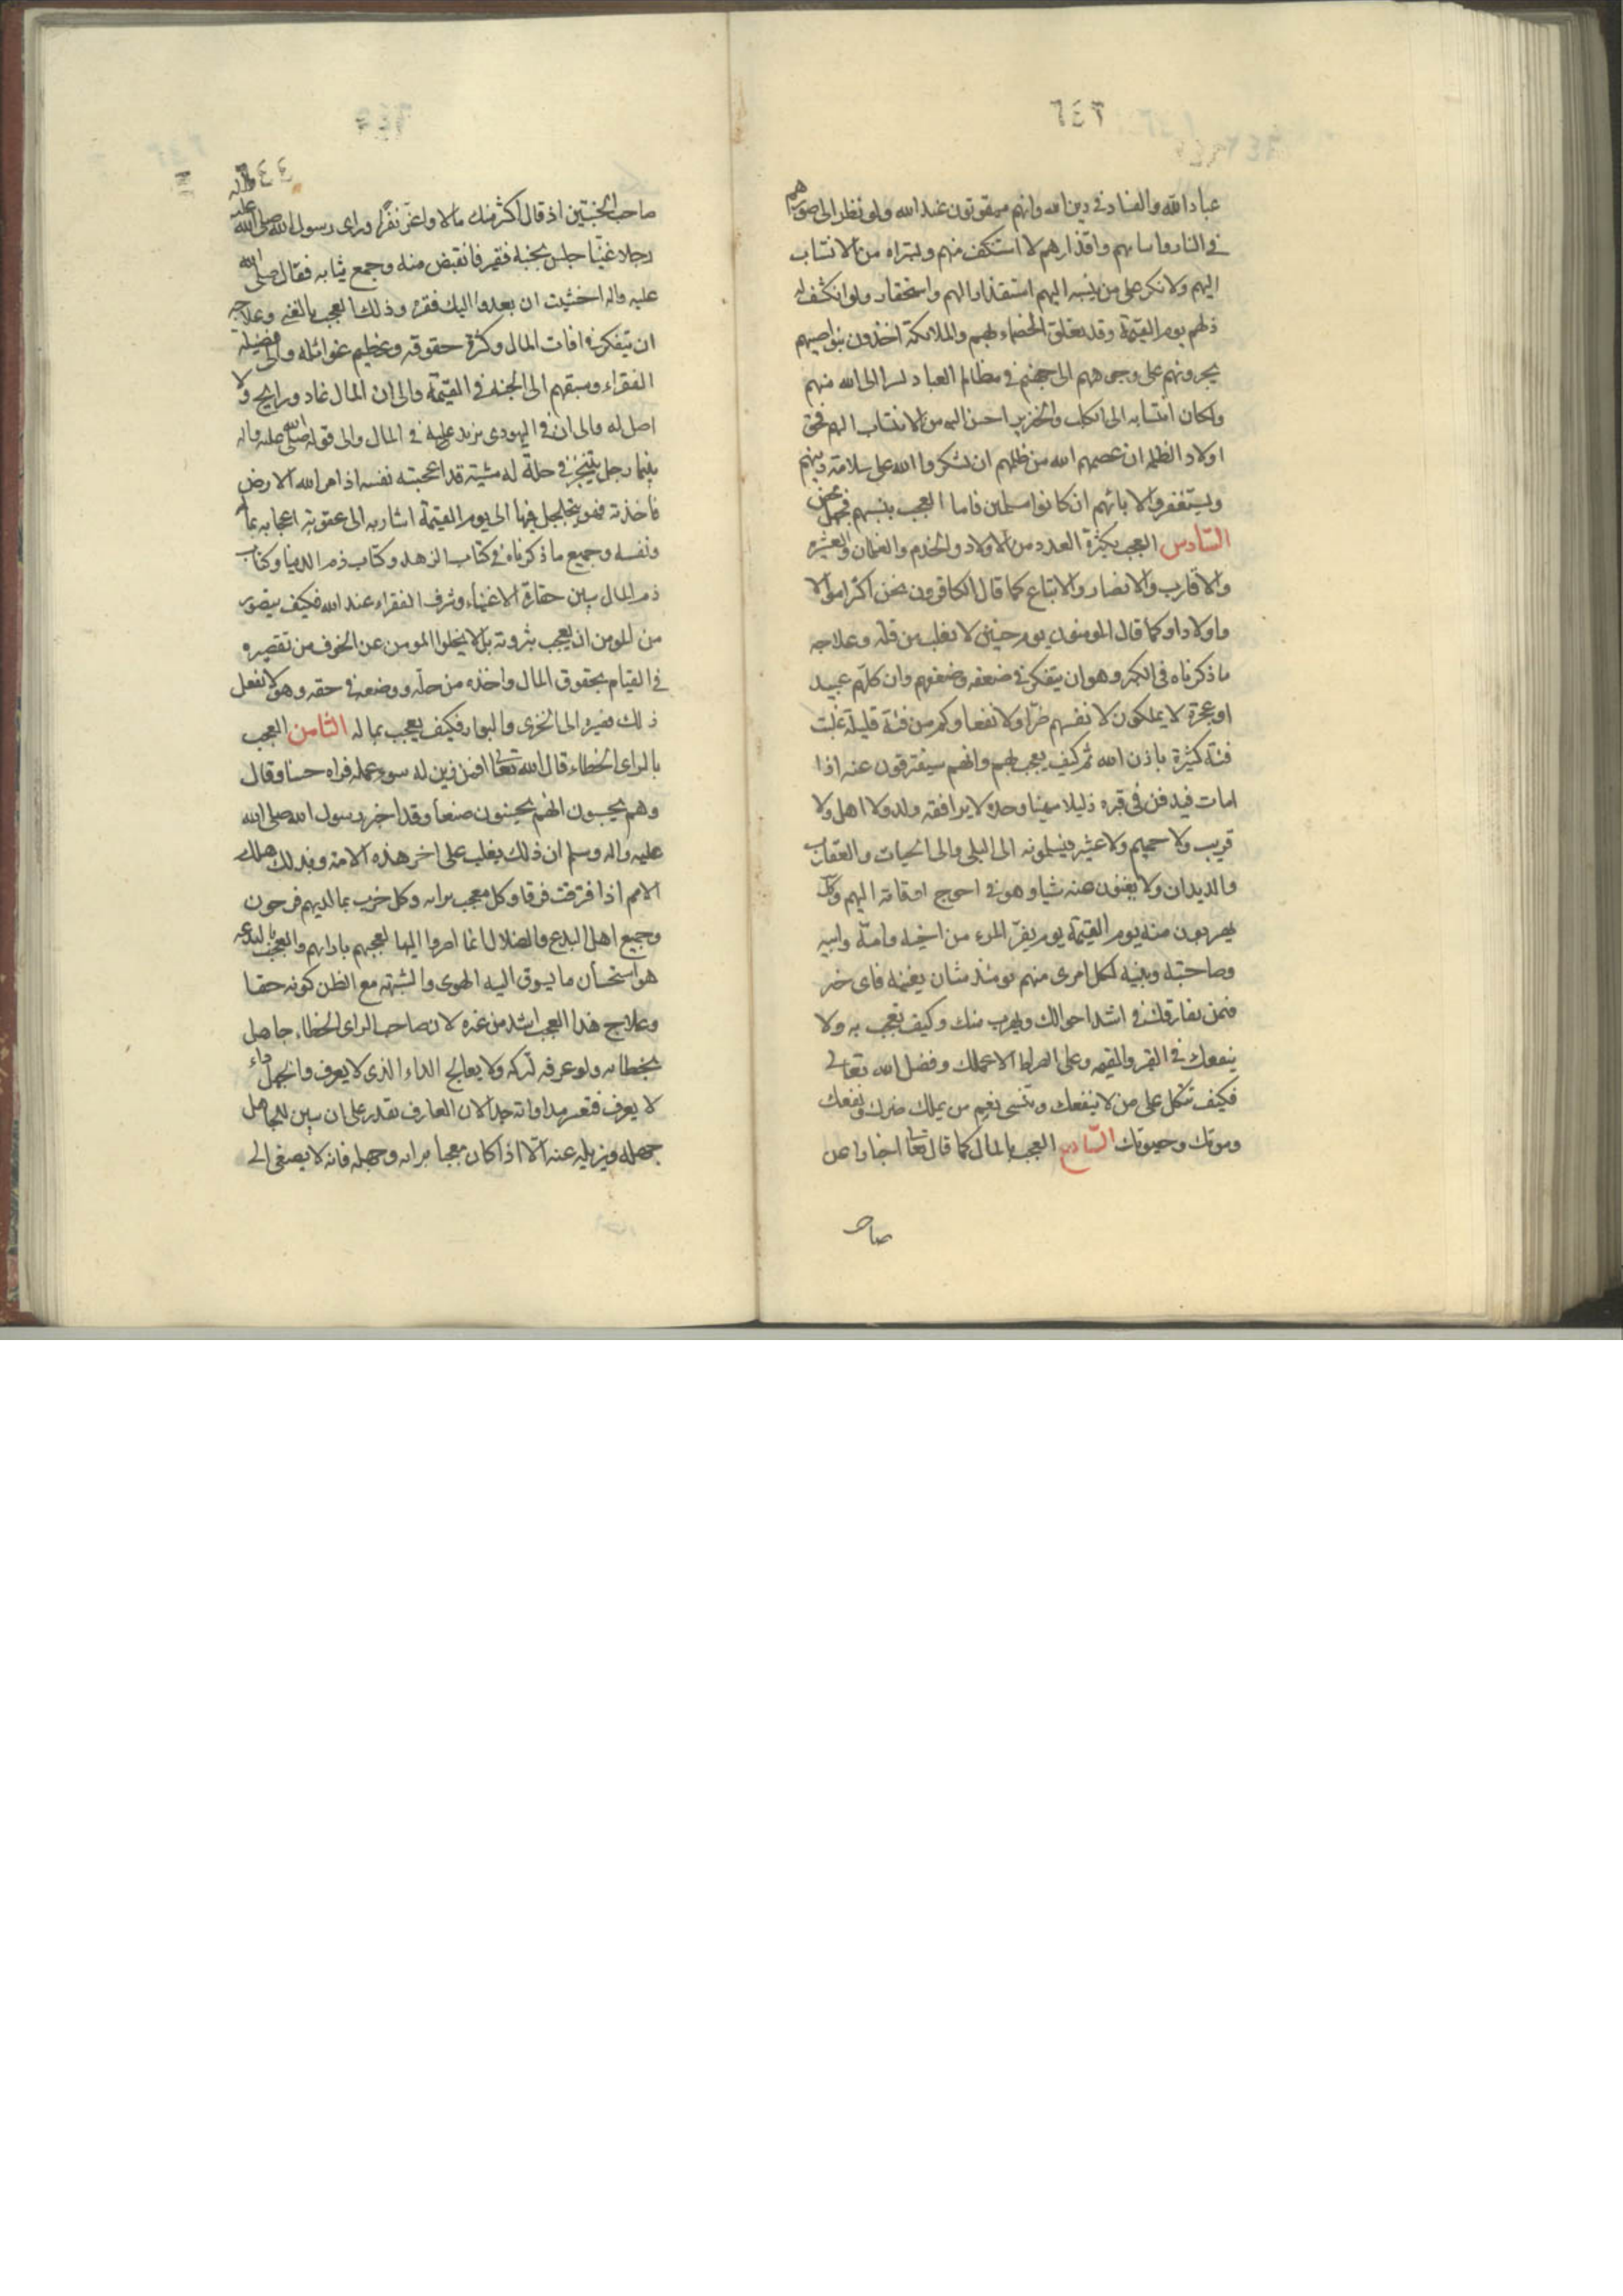 ٦٤٣
عباد الله والفساد في دين الله وانهم ممقوتون عند الله ولو نظر الى صورهم
في النار وانتانهم واقذارهم لاستنكف منهم ولتبرأ من الانتساب
اليهم ولانكر على من نسبه اليهم استقذارا لهم واستحقارا ولو انكشف له
ذلهم يوم القيمة وقد تعلق الخصماء بهم والملائكة اخذون بنواصيهم
يجرونهم على وجوههم الى جهنم في مظالم العباد لبرأ الى الله منهم
ولكان انتسابه الى الكلب والخنزير احسن اليه من الانتساب اليهم فحق
اولاد الظلمة ان عصمهم الله من ظلمهم ان يشكروا الله على سلامة دينهم
ويستغفروا لابائهم ان كانوا مسلمين فاما العجب بنسبهم فجهل محض
السادس العجب بكثرة العدد من الاولاد والخدم والغلمان والعشيرة
والاقارب والانصار والاتباع كما قال الكافرون نحن اكثر اموالا
واولادا وكما قال المومنون يوم حنين لا نغلب من قلة وعلاجه
ما ذكرناه في الكبر وهو ان يتفكر في ضعفه وضعفهم وان كلهم عبيد
او عجزة لا يملكون لانفسهم ضرا ولا نفعا وكم من فئة قليلة غلبت
فئة كثيرة باذن الله ثم كيف يعجب بهم وانهم سيفترقون عنه اذا
امات فيدفن في قبره ذليلا مهينا وحده لا يرافقه ولد ولا اهل ولا
قريب ولا حميم ولا عشير فيسلمونه الى البلى والى الحيات والعقارب
والديدان ولا يغنون عنه شيا وهو في احوج اوقاته اليهم وكل
يهربون منه يوم القيمة يوم يفر المرء من اخيه وامه وابيه
وصاحبته وبنيه لكل امرى منهم يومئذ شان يغنيه فاى خير
فمن يفارقك في اشد احوالك ويهرب منك وكيف تعجب به ولا
ينفعك في القبر والقيمه وعلى الصراط الا عملك وفضل الله تعالى
فكيف تتكل على من لا ينفعك وتنسى نعيم من يملك ضرك ونفعك
وموتك وحيوتك السابع العجب بالمال كما قال تعالى اخبارا عن
صاحب
٦٤٤
صاحب الجنتين اذ قال اكثر منك مالا واعز نفرا وراى رسول الله صلى الله عليه واله
رجلا غنيا جلس بجنبه فقير فانقبض منه وجمع ثيابه فقال صلى الله
عليه واله اخشيت ان يعدوا اليك فقره وذلك العجب بالغنى وعلاجه
ان يتفكر في افات المال وكثرة حقوقه وعظيم غوائله والى فضيلة
الفقراء وسبقهم الى الجنة في القيمة والى ان المال غاد ورايح ولا
اصل له والى ان في اليهودى من يزيد عليه في المال والى قوله صلى الله عليه واله
بينما رجل يتبختر في حلة له مشيته قد اعجبته نفسه اذ امر الله الارض
فاخذته فهو يتجلجل فيها الى يوم القيمة اشار به الى عقوبة اعجابه بماله
ونفسه وجميع ما ذكرناه في كتاب الزهد وكتاب ذم الدنيا وكتاب
ذم المال يبين حقارة الاغنياء وشرف الفقراء عند الله فكيف يتصور
من المومن ان يعجب بثروته بل لا يخلوا المومن عن الخوف من تقصيره
في القيام بحقوق المال واخذه من حله ووضعه في حقه وهو لا يفعل
ذلك فمصيره الى الخزى والبوار فكيف يعجب بماله الثامن العجب
بالراى الخطاء قال الله تعالى افمن زين له سوء عمله فراه حسنا وقال
وهم يحسبون انهم يحسنون صنعا وقد اخبر رسول الله صلى الله
عليه واله وسلم ان ذلك يغلب على اخر هذه الامة وبذلك هلك
الامم اذا فترقت فرقا وكل معجب برايه وكل حزب بما لديهم فرحون
وجميع اهل البدع والضلال انما اصروا اليها لعجبهم بارائهم والعجب بالبدعه
هو استحسان ما يسوق اليه الهوى والشبهة مع الظن كونه حقا
وعلاج هذا العجب اشد من غيره لان صاحب الراى الخطاء جاهل
بخطائه ولو عرفه لتركه ولا يعالج الداء الذى لا يعرف والجهل داء
لا يعرف فتعسر مداواته جدا لان العارف يقدر على ان يبين للجاهل
جهله ويزيله عنه الا اذا كان معجبا برايه وجهله فانه لا يصغى الى